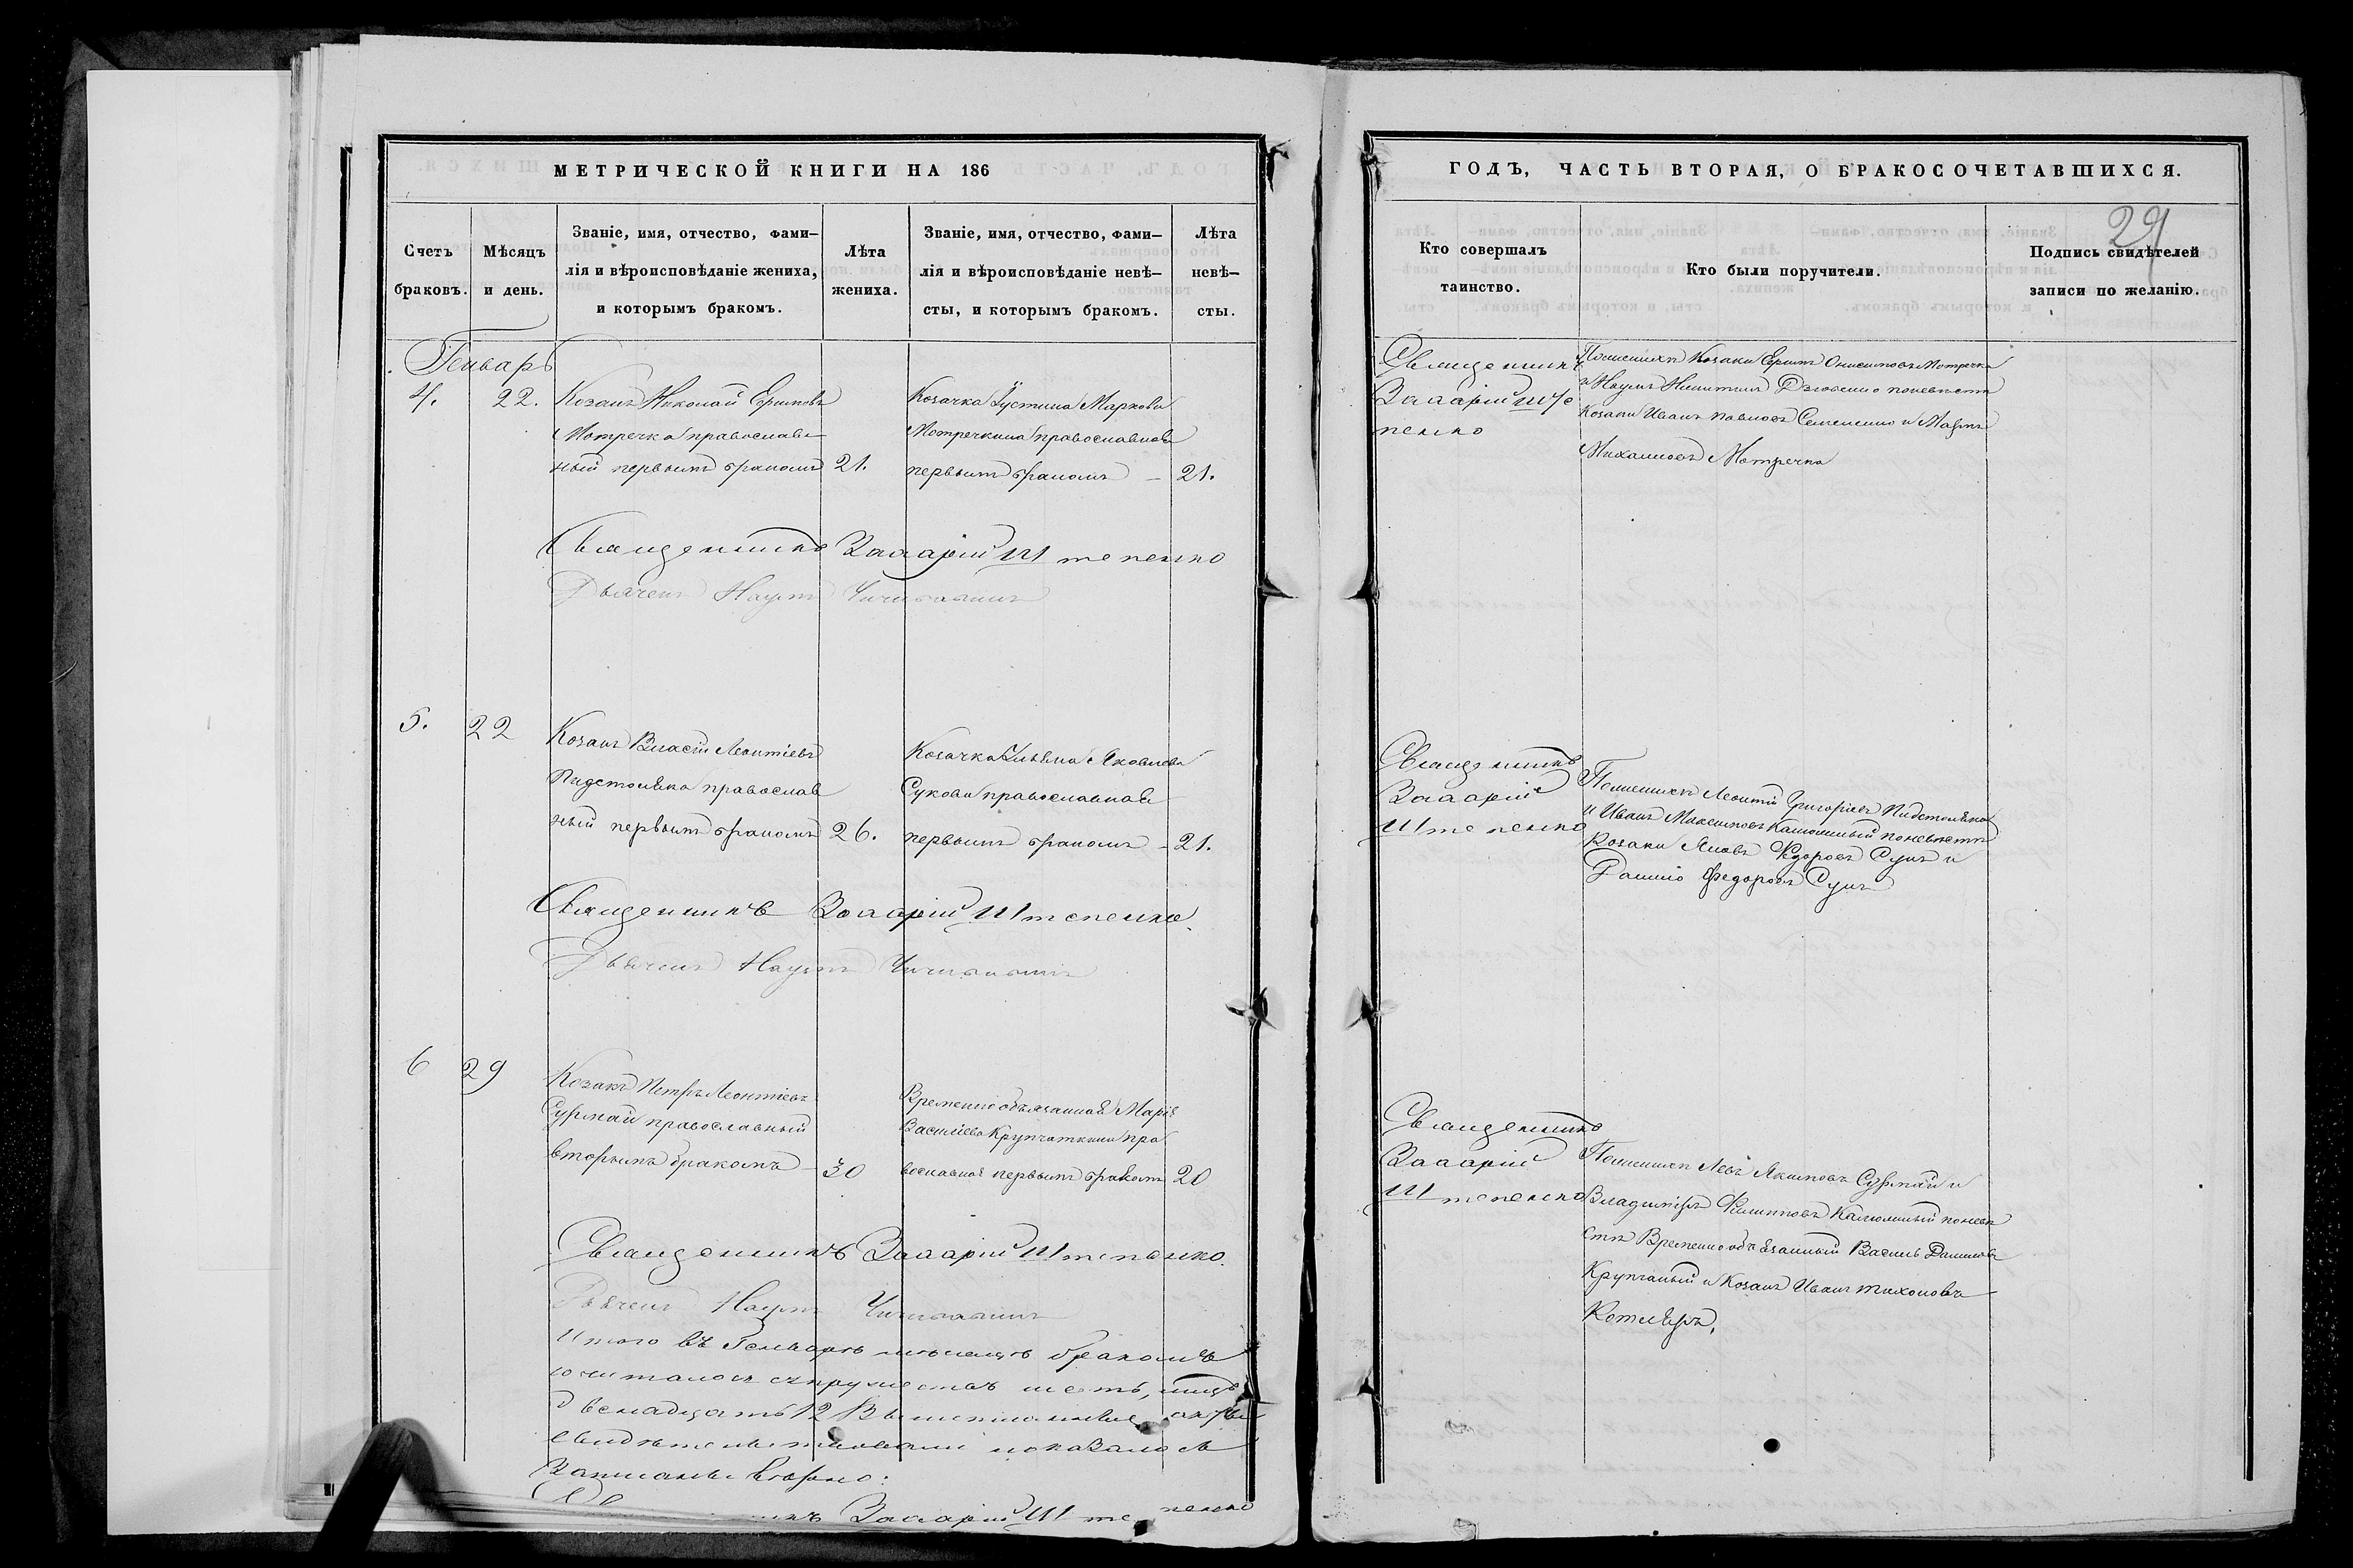 МЕТРИЧЕСКОЙ КНИГИ НА 186
Счетъ браковъ.
Мѣсяцъ и день.
Званіе, имя, отчество, фами-
лія и вѣроисповѣданіе жениха,
и которымъ бракомъ.
Лѣта
жениха.
Званіе, имя, отчество, фами-
лія и вѣроисповѣданіе невѣ-
сты, и которымъ бракомъ.
Лѣта
невѣ-
сты.
Генварь
4. 22.
Козакъ Николай Ефимовъ
Мотречко православ
ный первымъ бракомъ 21.
Козачка Іустина Маркова
Мотречкина православная
первымъ бракомъ - 21.
Священникъ Захарій Штепенко
Дьячекъ Наумъ
5. 22
Козакъ Власій Леонтіевъ
Пидстоявка православ
ный первымъ бракомъ 26.
Козачка Ульяна Яковлева
Сукова православная
первымъ бракомъ - 21.
Священникъ Захарій Штепенко
Дьячекъ Наумъ
6 29
Козакъ Петръ Леонтіевъ
Сурмай православный
вторымъ бракомъ - 30
Временнообязанная Марія
Василіева Крупчаткина пра
вославная первымъ бракомъ 20
Священникъ Захарій Штепенко.
Дьячекъ Наумъ
Итого въ Генварѣ мѣсяцѣ бракомъ
сочеталось супружествъ шесть, лицъ
двенадцать 12
показалось
Записаны вѣрно:
Захарій Штепенко
ГОДЪ, ЧАСТЬ ВТОРАЯ, О БРАКОСОЧЕТАВШИХСЯ.
29
Кто совершалъ
таинство.
Кто были поручители.
Подпись свидѣтелей
записи по желанію.
Священникъ
Захарій Ште
пенко
По женихѣ Козаки Ефимъ Онисимовъ Мотречко
и Наумъ Никитинъ по невѣстѣ
Козаки Иванъ Павловъ Семененко и
Михайловъ Мотречко
Священникъ
Захарій
Штепенко
По женихѣ Леонтій Григорьевъ Пидстоявка
и Иванъ Максимовъ Калюжный по невѣстѣ
Козаки Яковъ Федоровъ Сукъ и
Данило Федоровъ Сукъ
Священникъ
Захарій
Штепенко
По женихѣ Левъ Якимовъ Сурмай и
Владиміръ Филиповъ Калюжный по невѣ
стѣ Временнообязанный Василь Даниловъ
и Козакъ Иванъ Тихоновъ
Котляръ.